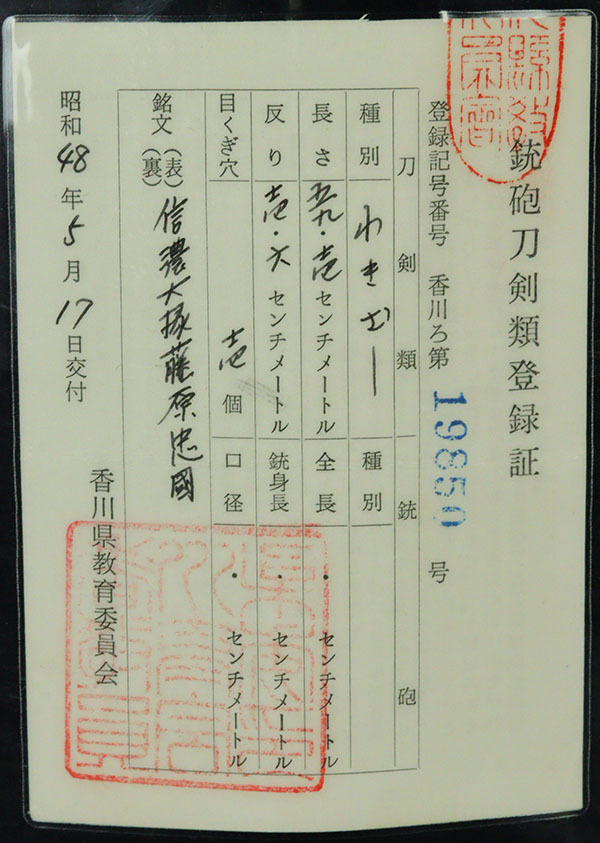 銃砲刀剣類登録証
登録記号番号 香川ろ第 19850 号
刀剣類 銃砲
種別 わきざし 種別
長さ 五九・壱 センチメートル 全長 ・ センチメートル
反り 壱・六 センチメートル 銃身長 ・ センチメートル
目くぎ穴 壱個 口径 ・ センチメートル
銘文 (表) 信濃大掾藤原忠國
(裏)
昭和48年5月17日交付
香川県教育委員会